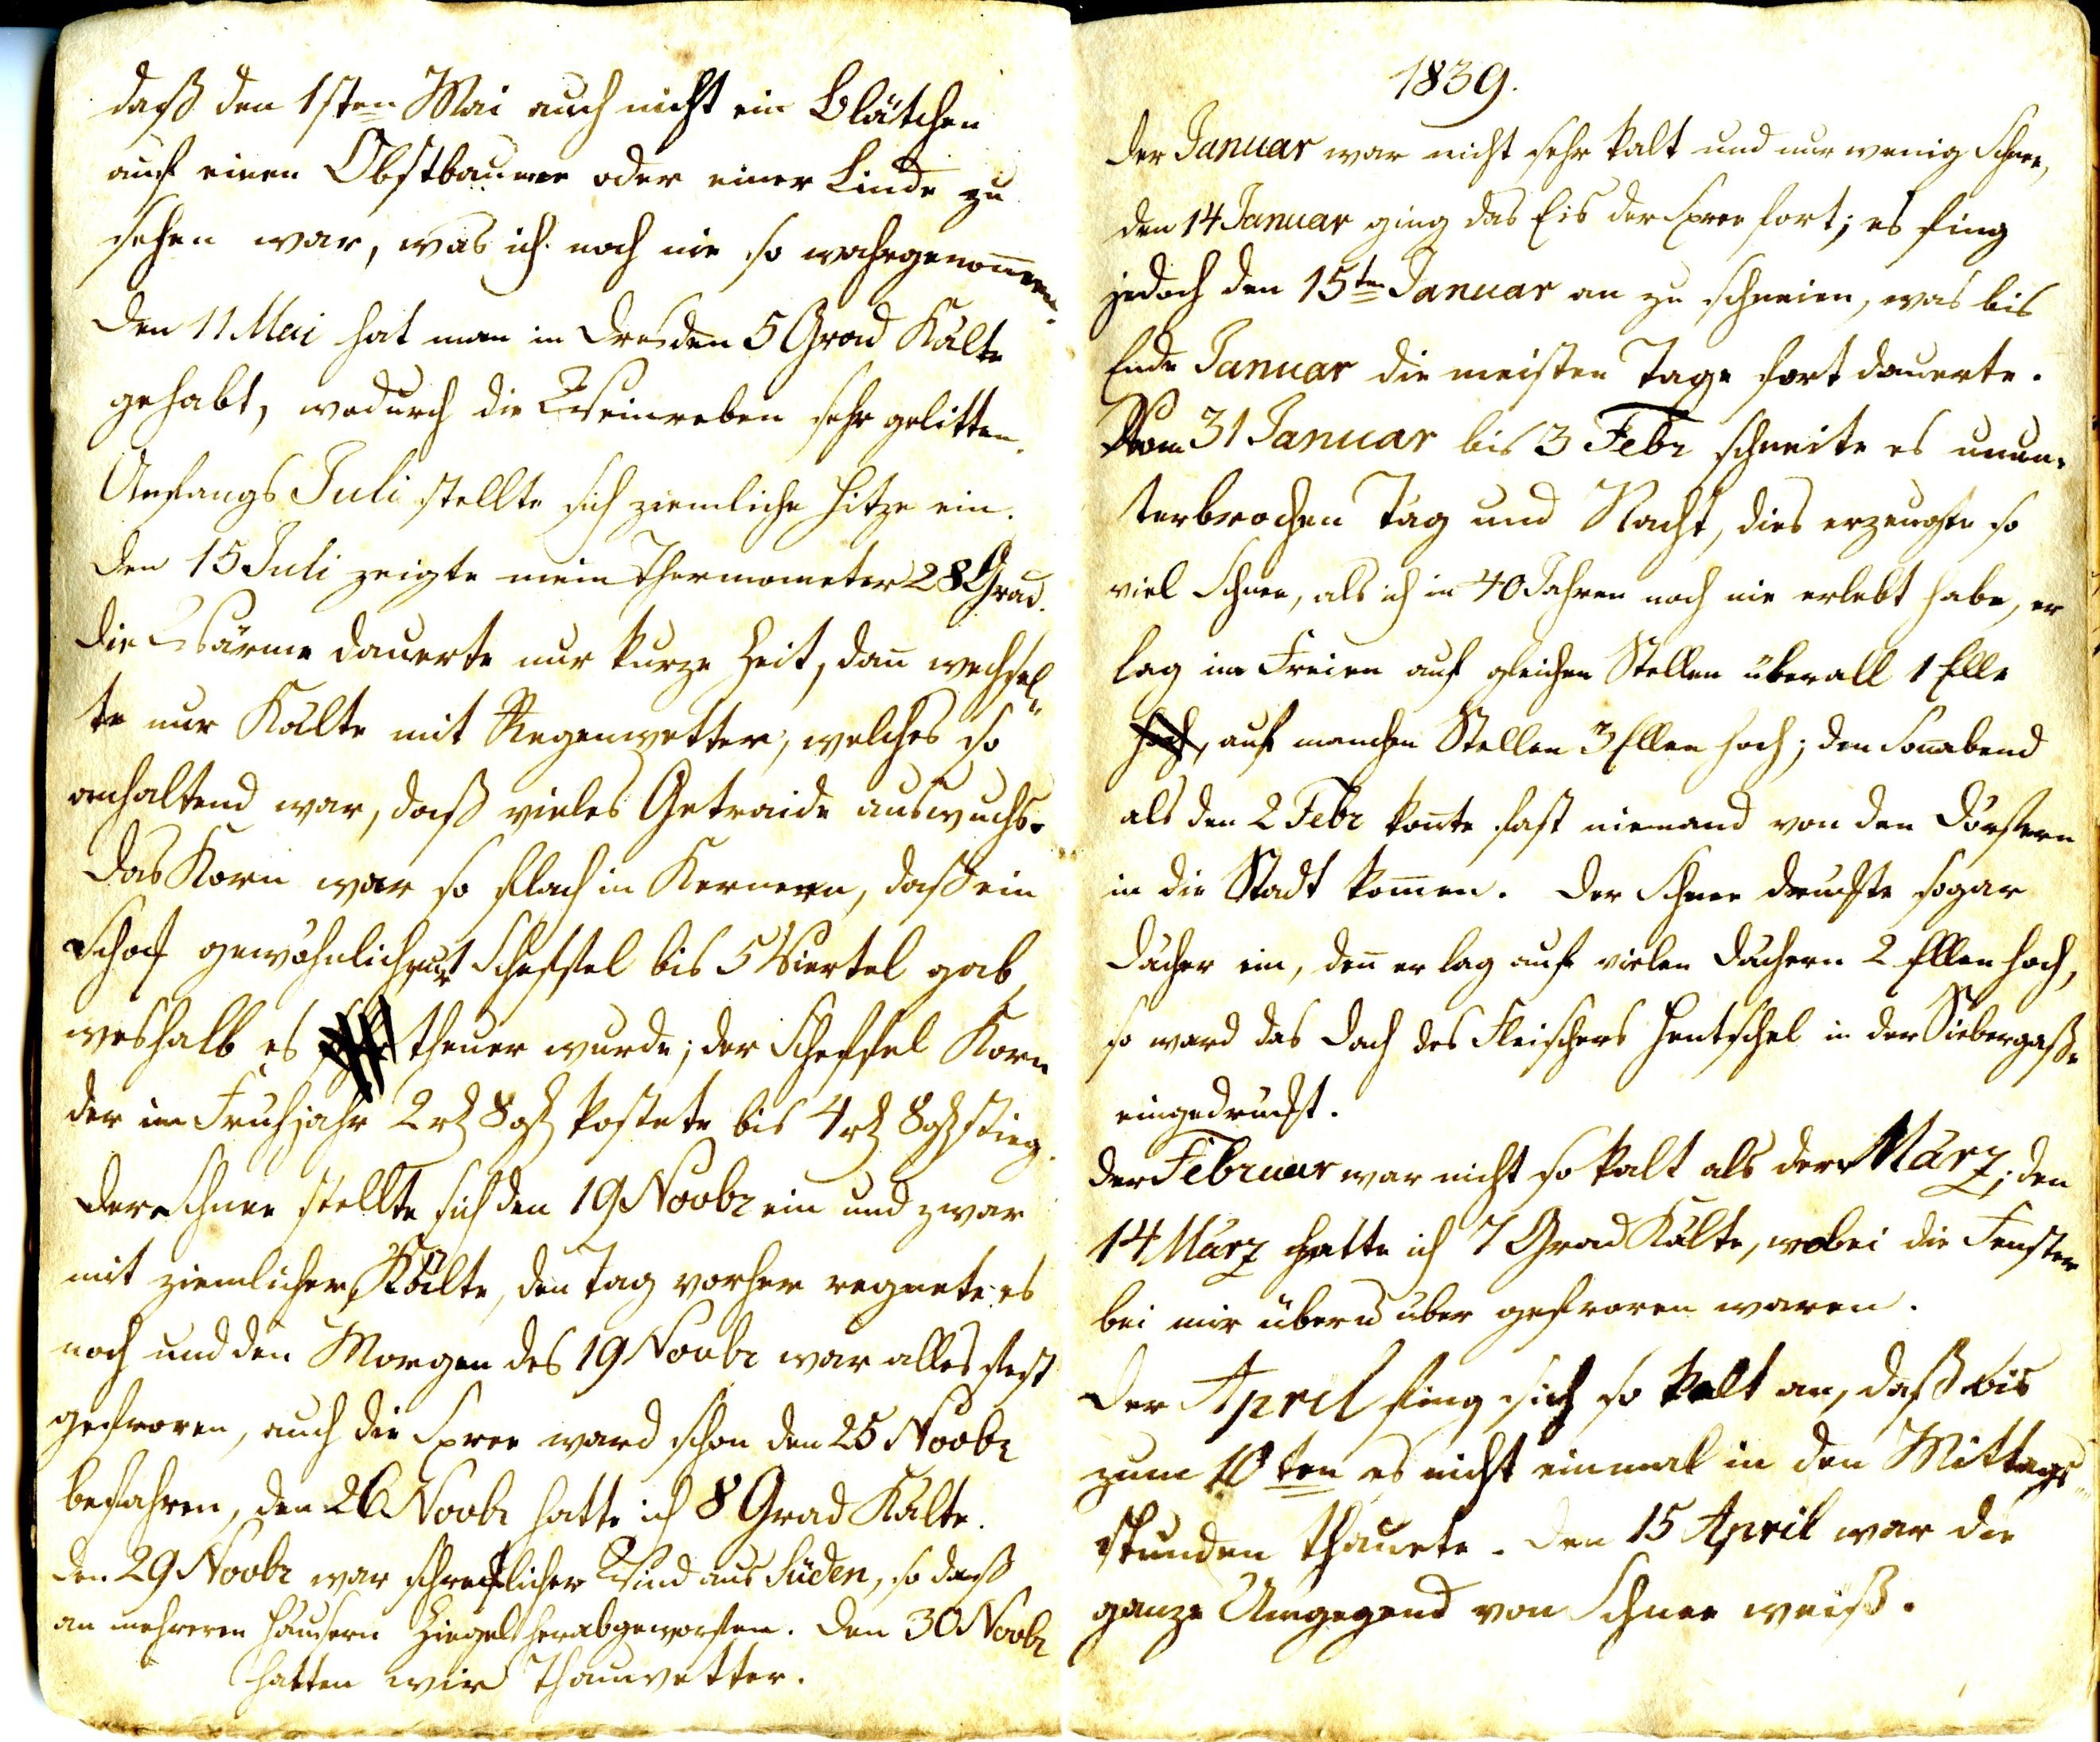 daß den 1sten Mai auch nicht ein Blätchen
auf einen Obstbaume oder einer Linde zu
sehen war, was ich noch nie so wahrgenom̄en.
Den 11 Mai hat man in Dresden 5 Grad Kälte
gehabt, wodurch die Weinreben sehr gelitten.
Anfangs Juli stellte sich ziemliche Hitze ein.
Den 15 Juli zeigte mein Thermometer 28 Grad.
Die Wärme dauerte nur kurze Zeit, dan̄ wechsel„
te nur Kälte mit Regenwetter, welches so
anhaltend war, daß vieles Getraide auswuchs.
Das Korn war so flach in Kernern, daß ein
Schock gewöhnlich nur 1 Scheffel bis 5 Viertel gab,
weshalb es theuer wurde; der Scheffel Korn
der im Frühjahr 2 rl 8 gl kostete bis 4 rl 8 gl stieg.
Der Schnee stellte sich den 19 Novbr ein und zwar
mit ziemlicher Kälte, den Tag vorher regnete es
noch und den Morgen des 19 Novbr war alles fest
gefroren, auch die Spree ward schon den 25 Novbr
befahren, den 26 Novbr hatte ich 8 Grad Kälte.
Den 29 Novbr war schrecklicher Wind aus Süden, so daß
an mehreren Häusern Ziegel herabgeworfen. Den 30 Novbr
hatten wir Thauwetter.
1839.
Der Januar war nicht sehr kalt und nur wenig Schnee,
den 14 Januar ging das Eis der Spree fort; es fing
jedoch den 15ten Januar an zu schneien, was bis
Ende Januar die meisten Tage fort dauerte.
Vom 31 Januar bis 3 Febr schneite es unun„
terbrochen Tag und Nacht, dies erzeugte so
viel Schnee, als ich in 40 Jahren noch nie erlebt habe, er
lag im Freien auf gleichen Stellen überall 1 Elle
hoch, auf manchen Stellen 3 Ellen hoch; den Son̄abend
als den 2 Febr kon̄te fast niemand von den Dörfern
in die Stadt kom̄en. Der Schnee druckte sogar
Dächer ein, den̄ er lag auf vielen Dächern 2 Ellen hoch,
so ward das Dach des Fleischers Hentschel in der Siebergaße
eingedruckt.
Der Februar war nicht so kalt als der März; den
14 März hatte ich 7 Grad Kälte, wobei die Fenster
bei mir über u über gefroren waren.
Der April fing sich so kalt an, daß bis
zum 10ten es nicht einmal in den Mittags„
stunden thauete. Den 15 April war die
ganze Umgegend von Schnee weiß.